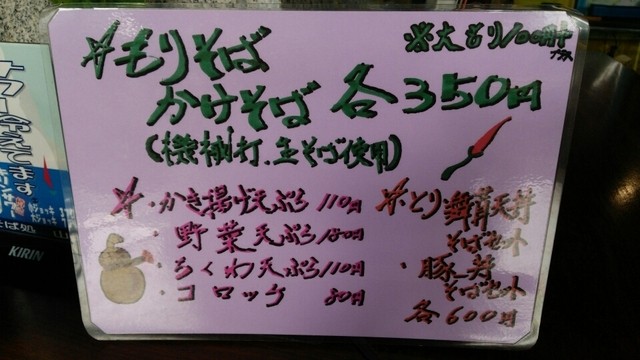 ☆もりそば
※大もり100円
プラス
かけそば 各350円
(機械打.生そば使用)
☆・かき揚げ天ぷら 110円
・野菜天ぷら 180円
・ちくわ天ぷら 110円
・コロッケ 80円
※とり舞茸天丼
そばセット
・豚丼
そばセット
各600円
冷えてます
KIRIN